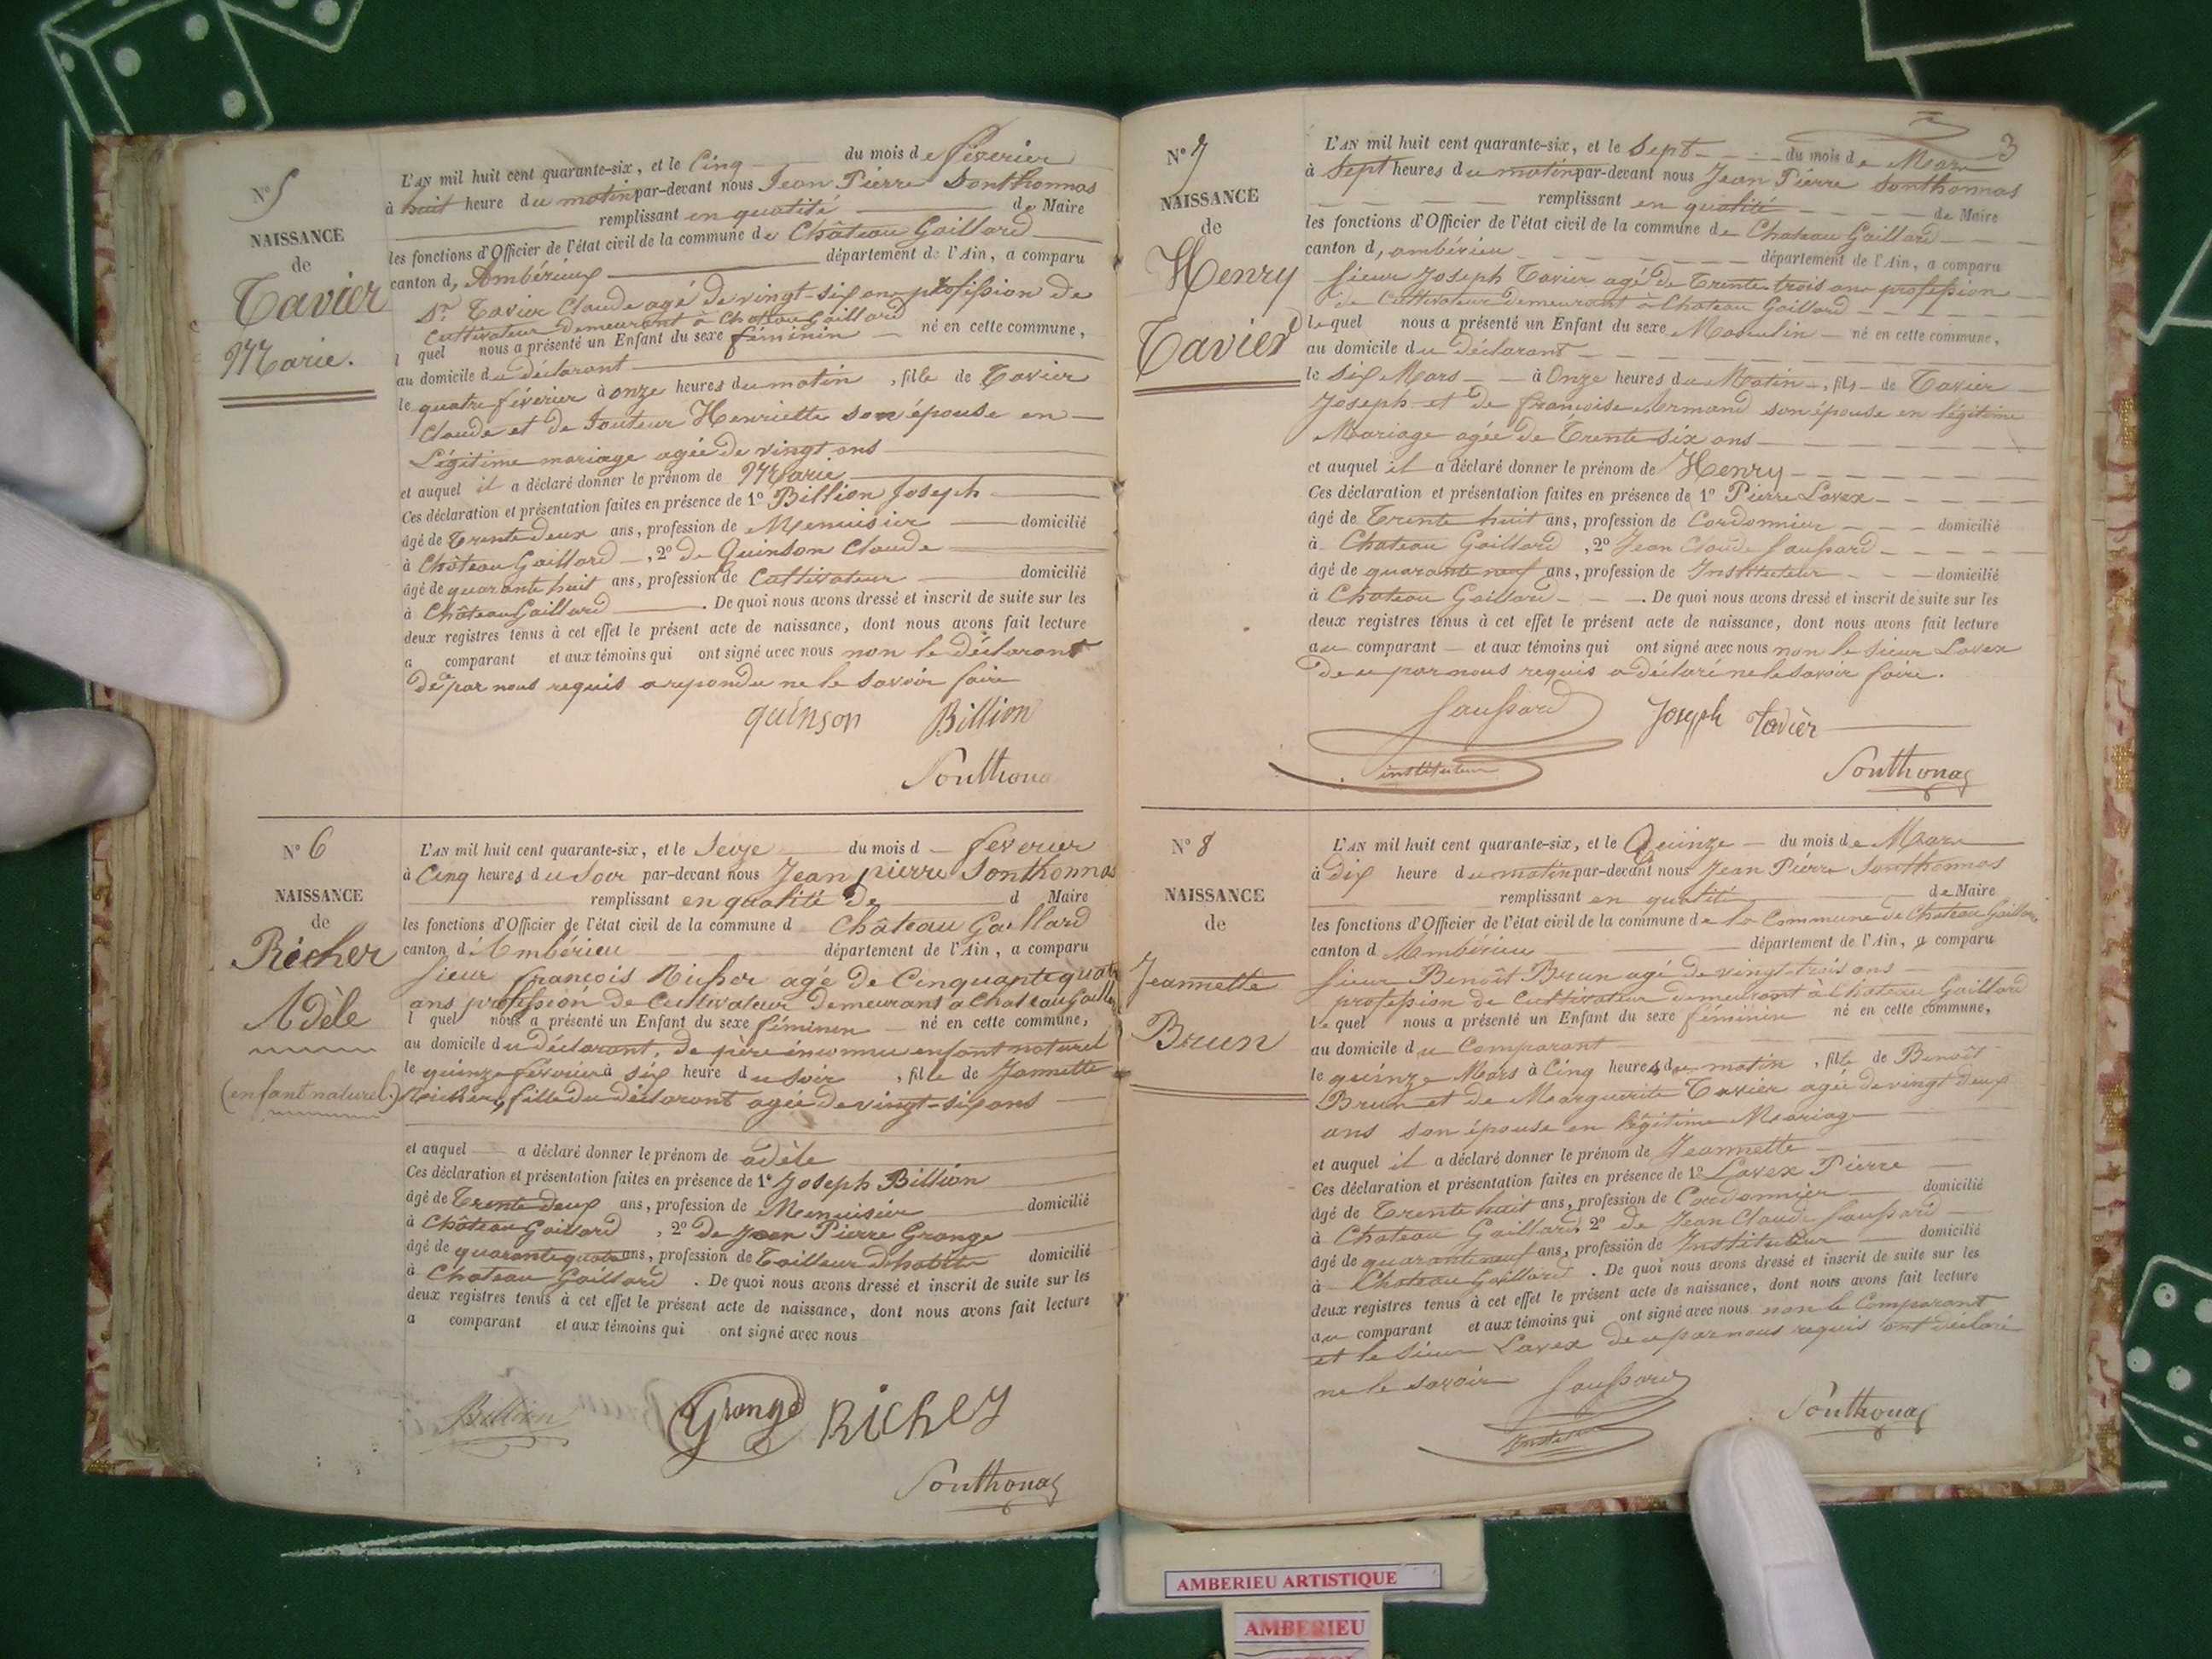 N° 5
NAISSANCE
de
Tavier
Marie.
L'AN mil huit cent quarante-six, et le Cinq du mois de féverier
à huit heure du matin par-devant nous Jean Pierre Sonthonnas
remplissant en qualité de Maire
les fonctions d'Officier de l'état civil de la commune de Château Gaillard
canton d, Ambérieux département de l'Ain, a comparu
Sr. Tavier Claude agé de vingt-six ans profession de
Cultivateur demeurant à Chateau Gaillard
l quel nous a présenté un Enfant du sexe féminin né en cette commune,
au domicile du déclarant
le quatre féverier à onze heures du matin, fille de Tavier
Claude et de Henriette son épouse en
Légitime mariage agée de vingt ans
et auquel il a déclaré donner le prénom de Marie
Ces déclaration et présentation faites en présence de 1° Billion Joseph
âgé de Trente deux ans, profession de Menuisier domicilié
à Château Gaillard, 2° de Quinson Claude
âgé de quarante huit ans, profession de Cultivateur domicilié
à Château Gaillard. De quoi nous avons dressé et inscrit de suite sur les
deux registres tenus à cet effet le présent acte de naissance, dont nous avons fait lecture
a comparant et aux témoins qui ont signé avec nous non le déclarant
de par nous requis a repondu ne le savoir faire
quinson Billion
Sonthonas
N° 6
NAISSANCE
de
Richer
Adèle
(enfant naturel.)
L'AN mil huit cent quarante-six, et le Seize du mois d féverier
à Cinq heures du Soir par-devant nous Jean pierre Sonthonnas
remplissant en qualité de d Maire
les fonctions d'Officier de l'état civil de la commune d Château Gaillard
canton d'Ambérieu département de l'Ain, a comparu
sieur françois Richer agé de Cinquante quatre
ans profession de Cultivateur demeurans à Chateau Gaillard
l quel nous a présenté un Enfant du sexe féminin né en cette commune,
au domicile du déclarant, de père inconnu enfant naturel
le quinze féverier à six heure du soir, fille de Jannette
Richer, fille du déclarant agée de vingt-six ans
et auquel a déclaré donner le prénom de adèle
Ces déclaration et présentation faites en présence de 1° Joseph Billion
âgé de Trente deux ans, profession de Menuisier domicilié
à Château Gaillard, 2° de Jean Pierre Grange
âgé de quarante quatre ans, profession de Tailleur d'habits domicilié
à Chateau Gaillard. De quoi nous avons dressé et inscrit de suite sur les
deux registres tenus à cet effet le présent acte de naissance, dont nous avons fait lecture
a comparant et aux témoins qui ont signé avec nous
Billion Grange Richer
Sonthonas
3
N° 7
NAISSANCE
de
Henry
Tavier
L'AN mil huit cent quarante-six, et le Sept du mois de Mars
à Sept heures du matin par-devant nous Jean Pierre Sonthonnas
remplissant en qualité de Maire
les fonctions d'Officier de l'état civil de la commune de Chateau Gaillard
canton d, ambérieu département de l'Ain, a comparu
sieur Joseph Tavier agé de Trente trois ans profession
de Cultivateur demeurant à Chateau Gaillard
lequel nous a présenté un Enfant du sexe Masculin né en cette commune,
au domicile du déclarant
le Six Mars à Onze heures du Matin, fils de Tavier
Joseph et de françoise son épouse en légitime
Mariage agée de Trente six ans
et auquel il a déclaré donner le prénom de Henry
Ces déclaration et présentation faites en présence de 1° Pierre Lavex
âgé de Trente huit ans, profession de Cordonnier domicilié
à Chateau Gaillard, 2° Jean Claude Saussard
âgé de quarante neuf ans, profession de Instituteur domicilié
à Chateau Gaillard. De quoi nous avons dressé et inscrit de suite sur les
deux registres tenus à cet effet le présent acte de naissance, dont nous avons fait lecture
au comparant et aux témoins qui ont signé avec nous non le sieur Lavex
de ce par nous requis a déclaré ne le savoir faire.
Saussard Joseph Tavièr
instituteur Sonthonas
N° 8
NAISSANCE
de
Jeannette
Brun
L'AN mil huit cent quarante-six, et le Quinze du mois de Mars
à dix heure du matin par-devant nous Jean Pierre Sonthonnas
remplissant en qualité de Maire
les fonctions d'Officier de l'état civil de la commune de la Commune de Chateau Gaillard
canton d Ambérieu département de l'Ain, a comparu
sieur Benoît Brun agé de vingt-trois ans
profession de Cultivateur demeurant à Chateau Gaillard
lequel nous a présenté un Enfant du sexe féminin né en cette commune,
au domicile du Comparant
le quinze Mars à Cinq heures du matin, fille de Benoît
Brun et de Marguerite Tavier agée de vingt deux
ans son épouse en légitime Mariage
et auquel il a déclaré donner le prénom de Jeannette
Ces déclaration et présentation faites en présence de 1° Lavex Pierre
âgé de Trente huit ans, profession de Cordonnier domicilié
à Chateau Gaillard 2° de Jean Claude Saussard
âgé de quarante neuf ans, profession de Instituteur domicilié
à Chateau Gaillard. De quoi nous avons dressé et inscrit de suite sur les
deux registres tenus à cet effet le présent acte de naissance, dont nous avons fait lecture
au comparant et aux témoins qui ont signé avec nous non le Comparant
et le Sieur Lavex de ce par nous requis ont déclaré
ne le savoir Saussard
Sonthonas
AMBERIEU ARTISTIQUE
AMBERIEU